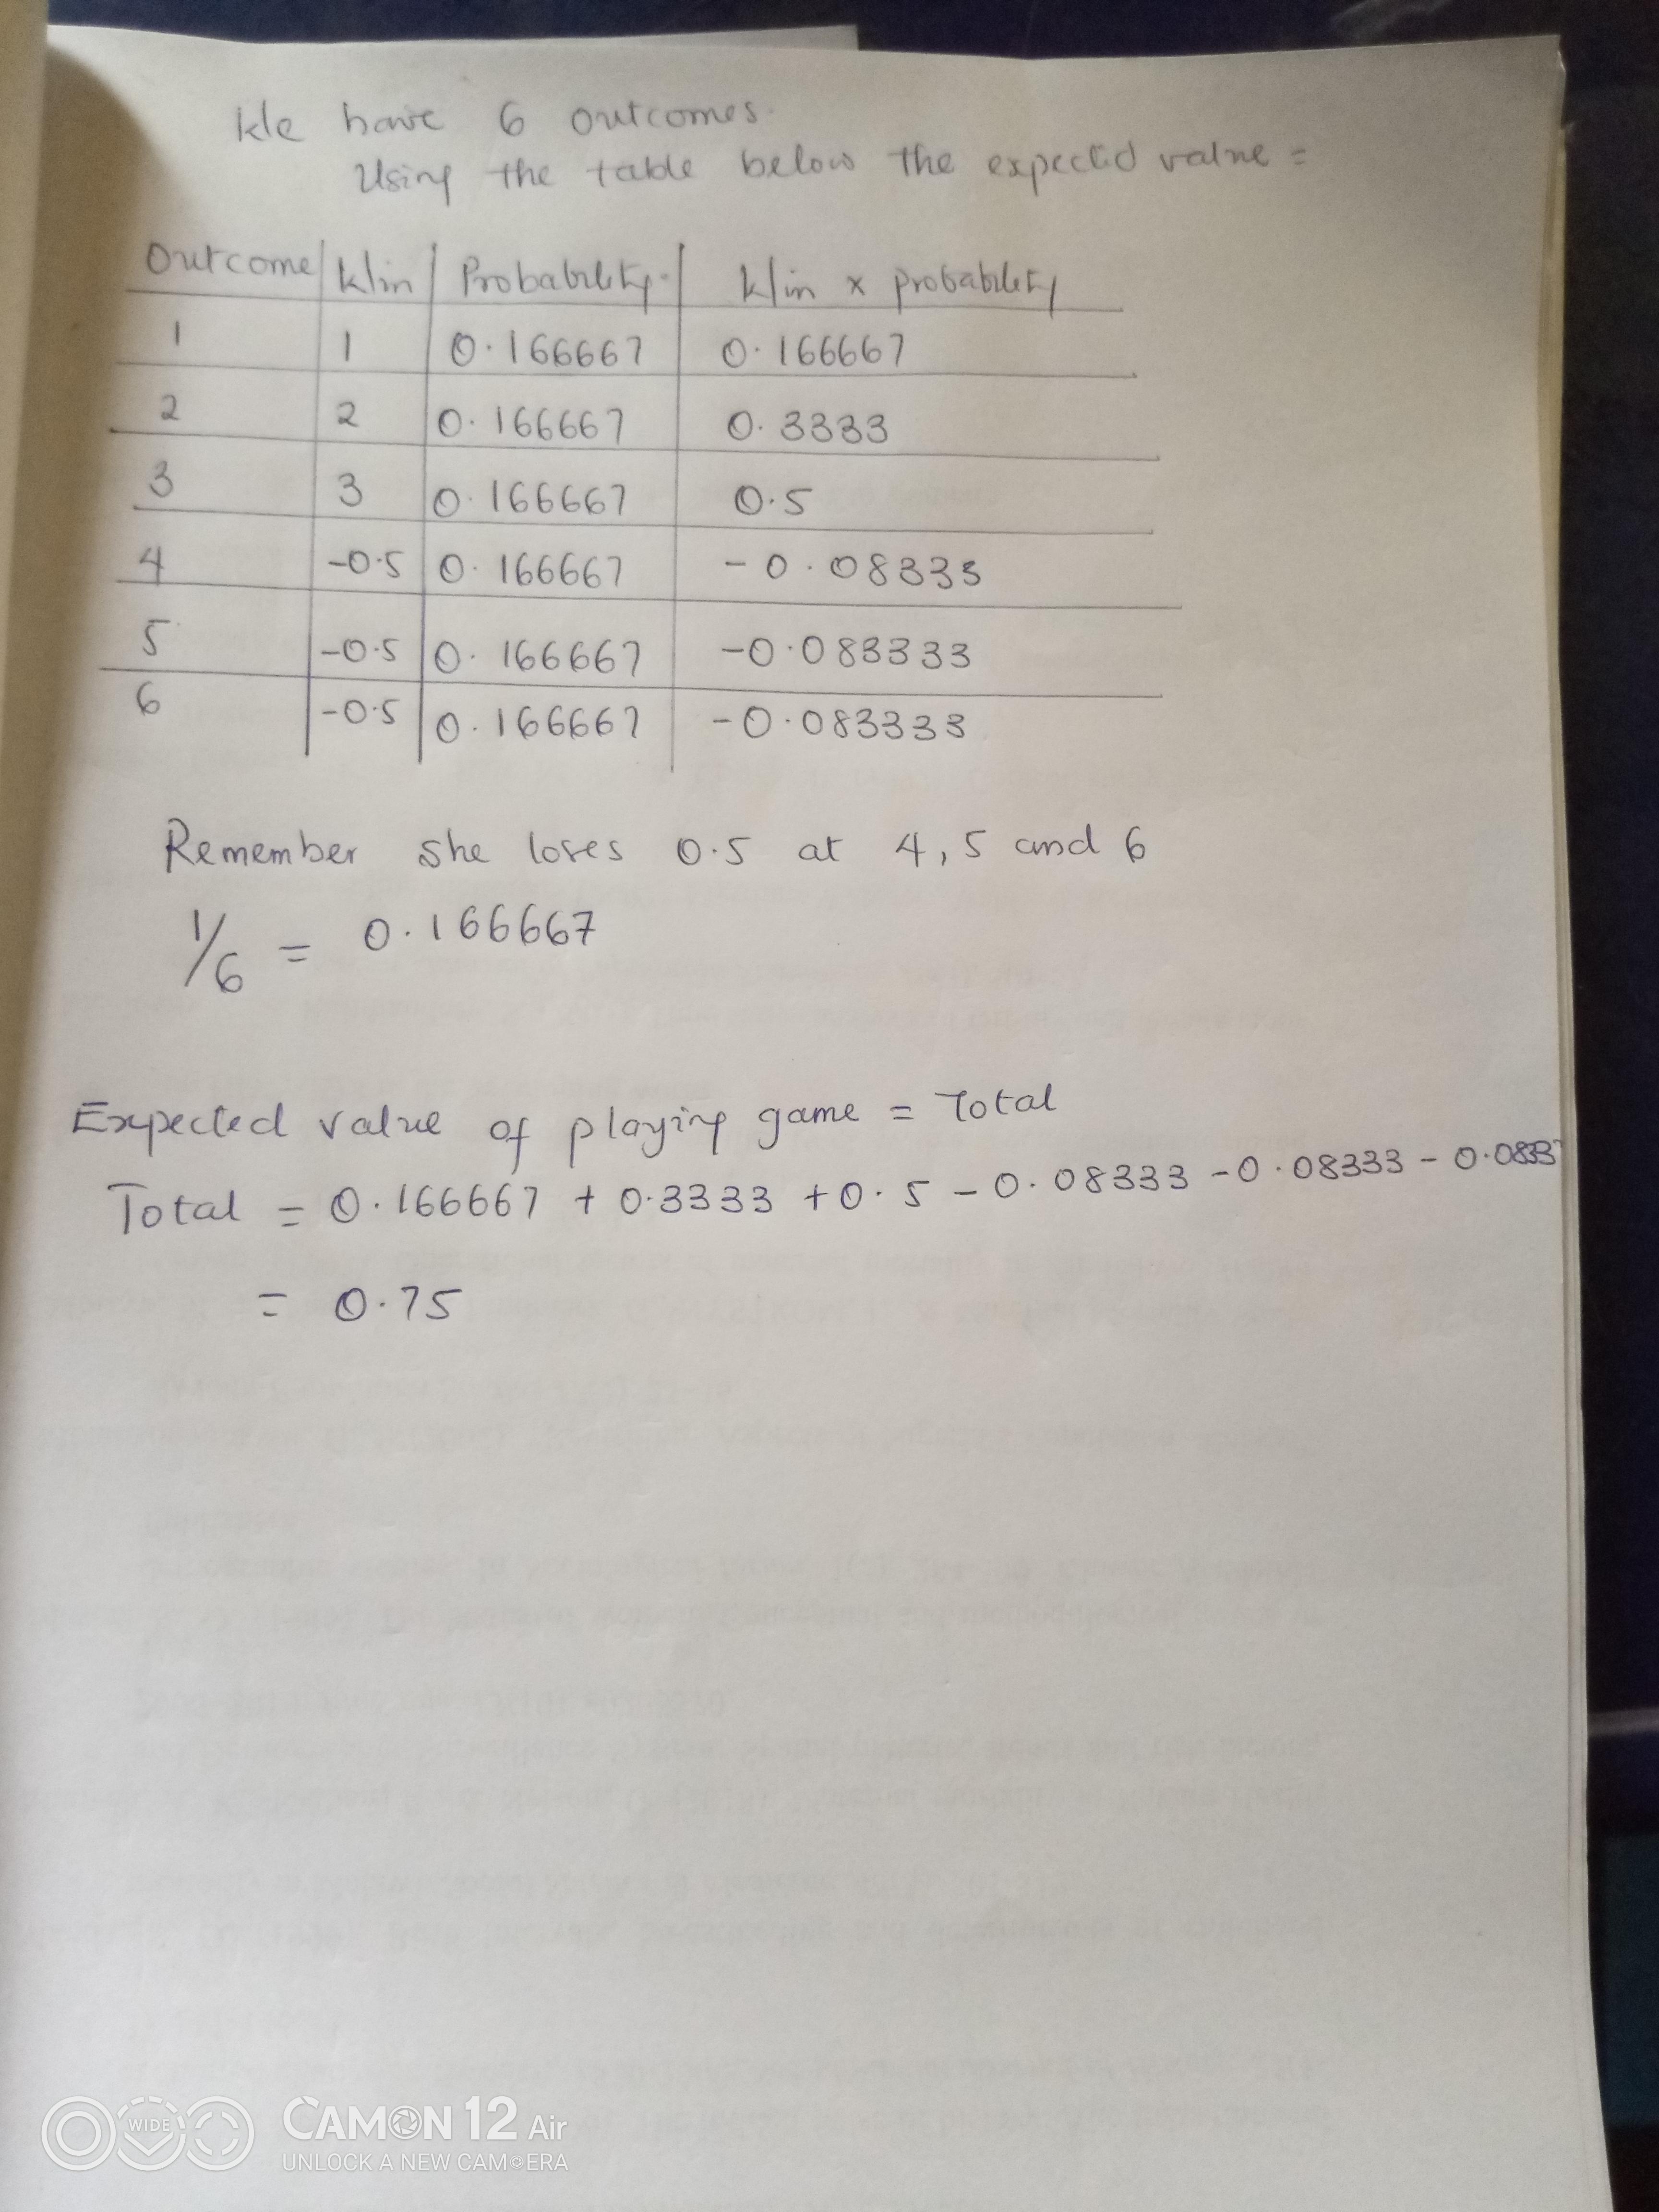 We have 6 outcomes.
Using the table below the expected value =
Outcome Win Probability Win x probability
1 1 0.166667 0.166667
2 2 0.166667 0.3333
3 3 0.166667 0.5
4 -0.5 0.166667 -0.08333
5 -0.5 0.166667 -0.083333
6 -0.5 0.166667 -0.083333
Remember she loses 0.5 at 4, 5 and 6
1/6 = 0.166667
Expected value of playing game = Total
Total = 0.166667 + 0.3333 + 0.5 - 0.08333 - 0.08333 - 0.0833
= 0.75
WIDE
CAMON 12 Air
UNLOCK A NEW CAMERA